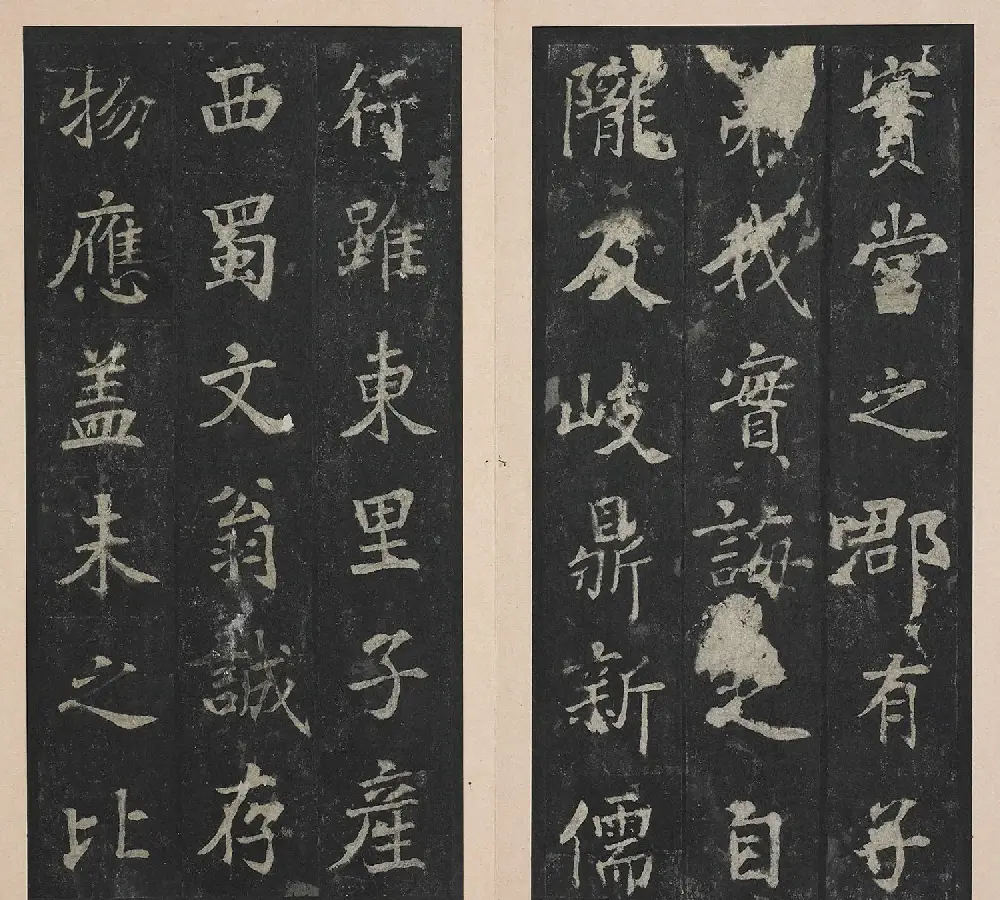 實當之郡有子
弟我實誨之自
隴及岐鼎新儒
行雖東里子產
西蜀文翁誠存
物應盖未之比